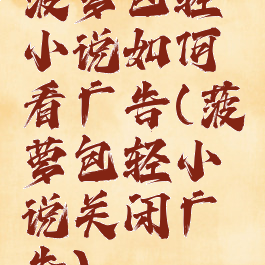 菠萝包轻
小说如何
看广告(菠
萝包轻小
说关闭广
告)